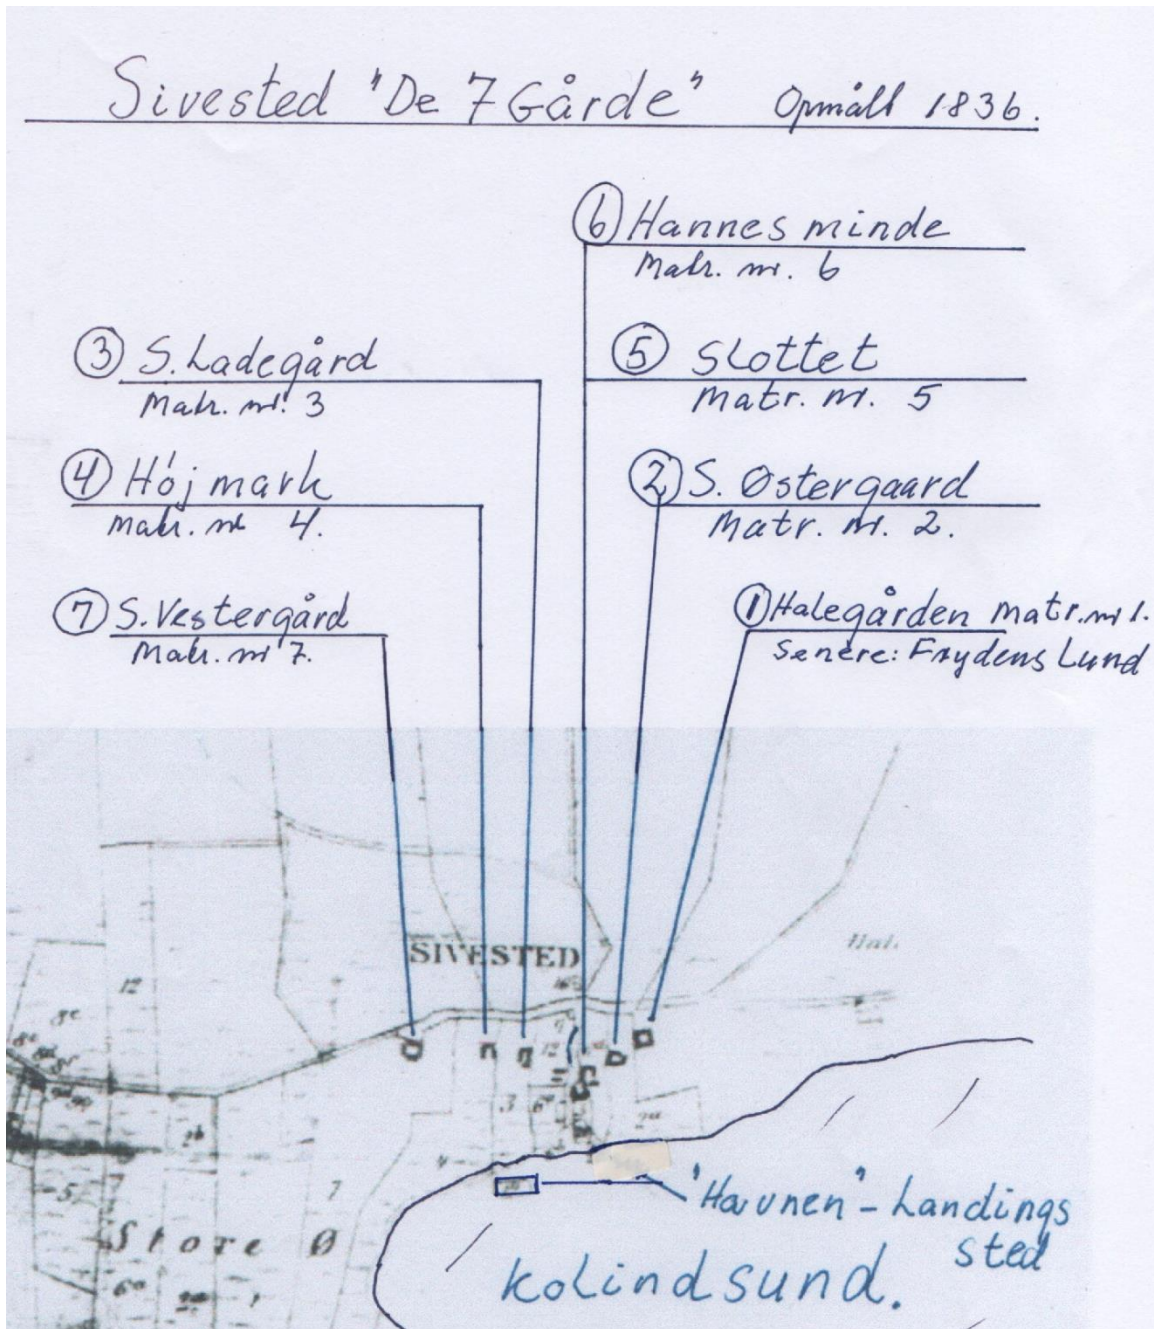 Sivested "De 7 Gårde" Opmålt 1836.
6 Hannes minde
Matr. nr. 6
3 S. Ladegård
Matr. nr. 3
5 Slottet
Matr. nr. 5
4 Højmark
Matr. nr 4.
2 S. Østergaard
Matr. nr. 2.
7 S. Vestergård
Matr. nr 7.
1 Halegården matr. nr 1.
Senere: Frydens Lund
SIVESTED
Hal.
12
8c
12
3
6a
2a
2b
5
7
7
4
Store Ø
6a
"Havnen" - Landings
sted
Kolindsund.